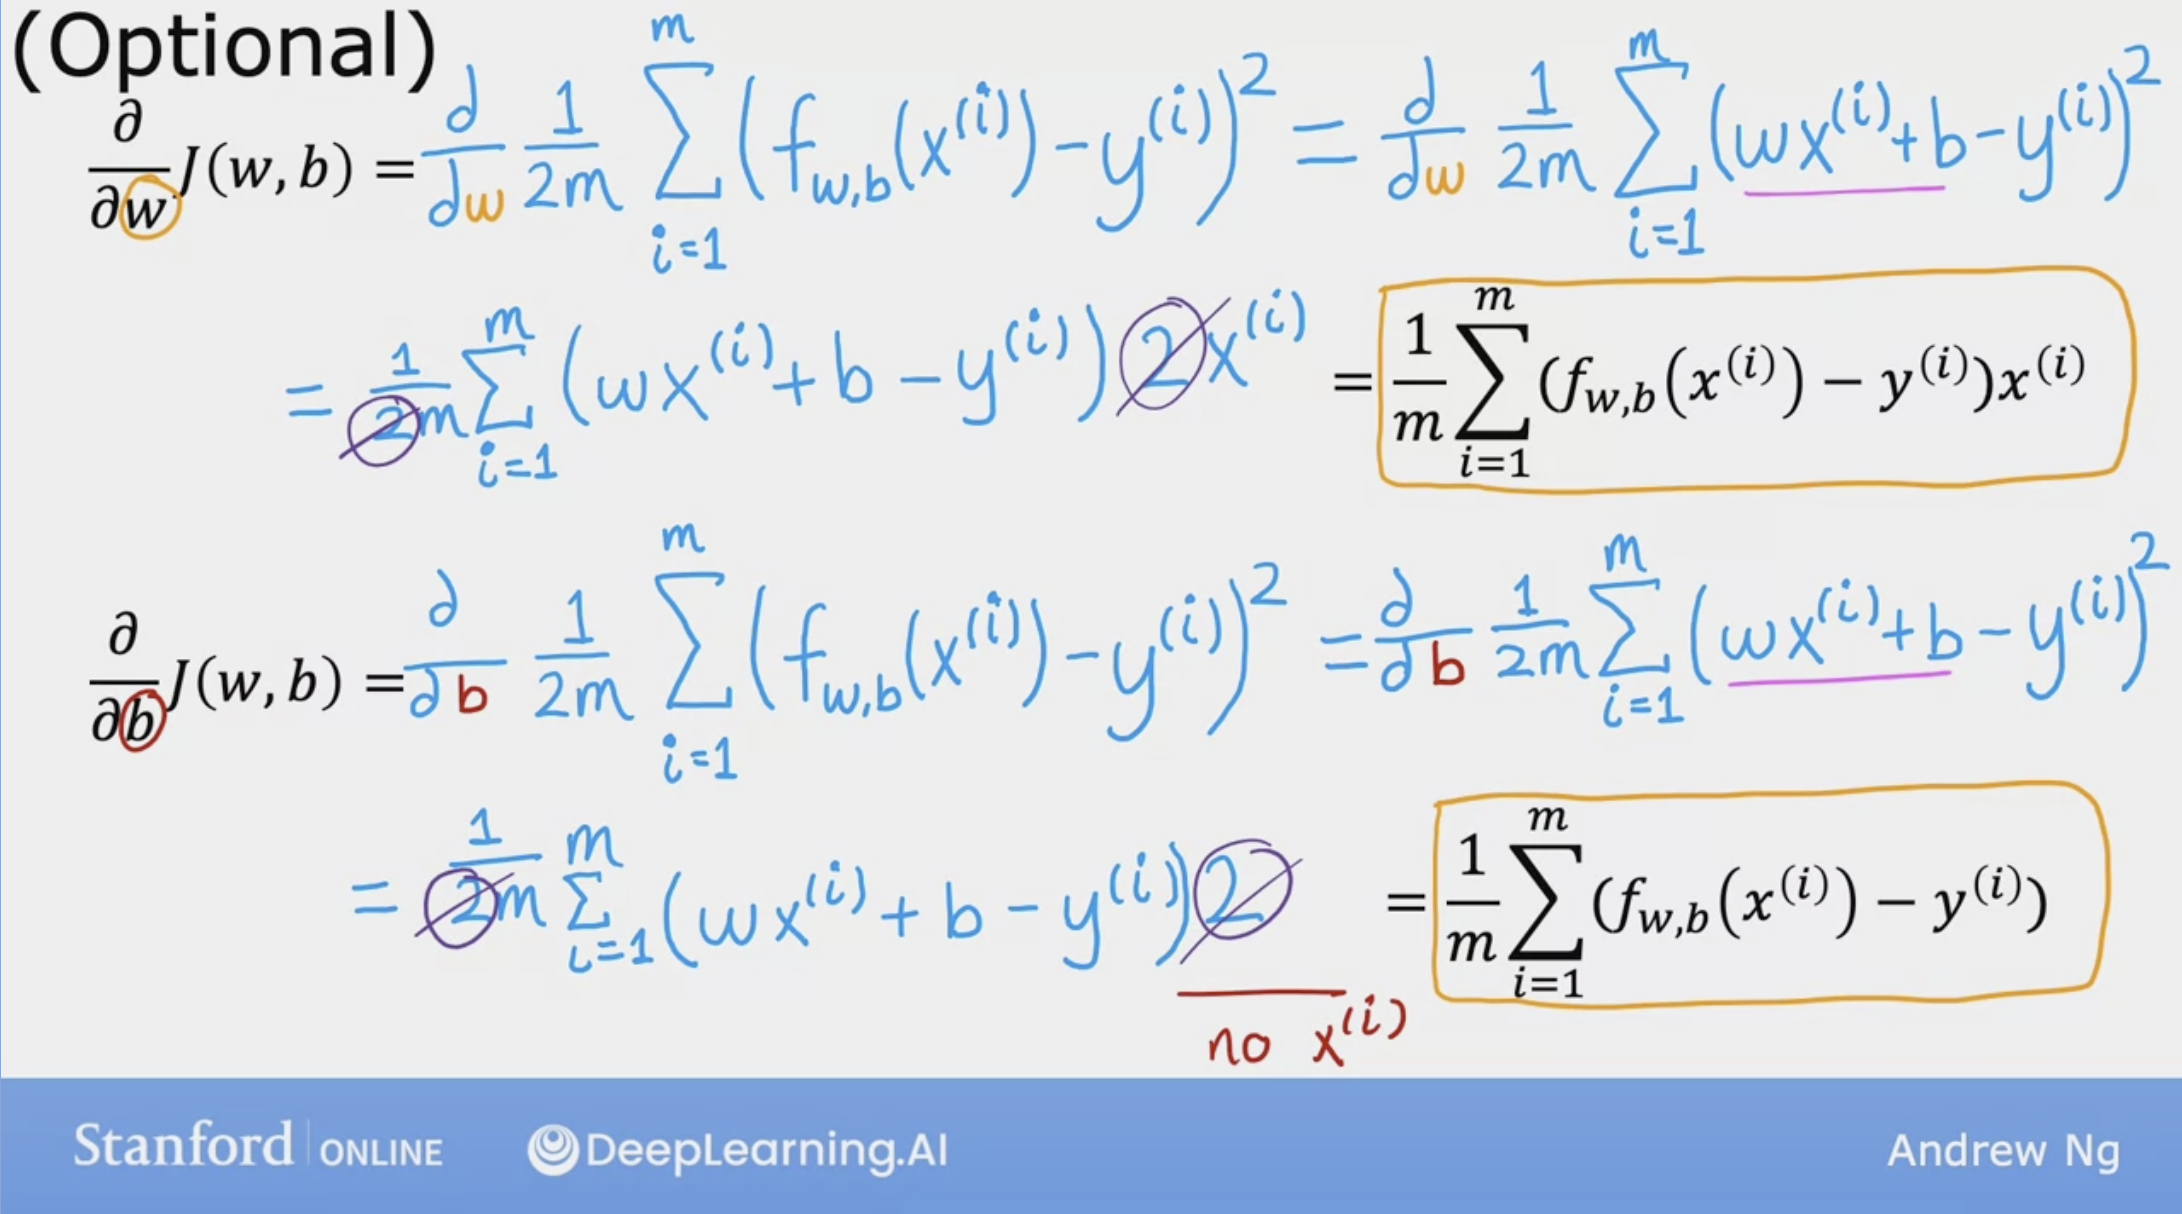 (Optional)
∂/∂w J(w, b) = d/dw 1/2m ∑_{i=1}^{m} (f_{w,b}(x^{(i)}) - y^{(i)})^2 = d/dw 1/2m ∑_{i=1}^{m} (wx^{(i)} + b - y^{(i)})^2
= 1/2m ∑_{i=1}^{m} (wx^{(i)} + b - y^{(i)}) 2x^{(i)} = 1/m ∑_{i=1}^{m} (f_{w,b}(x^{(i)}) − y^{(i)})x^{(i)}
∂/∂b J(w, b) = ∂/∂b 1/2m ∑_{i=1}^{m} (f_{w,b}(x^{(i)}) - y^{(i)})^2 = ∂/∂b 1/2m ∑_{i=1}^{m} (wx^{(i)} + b - y^{(i)})^2
= 1/2m ∑_{i=1}^{m} (wx^{(i)} + b - y^{(i)}) 2 = 1/m ∑_{i=1}^{m} (f_{w,b}(x^{(i)}) − y^{(i)})
no x^{(i)}
Stanford ONLINE DeepLearning.AI Andrew Ng